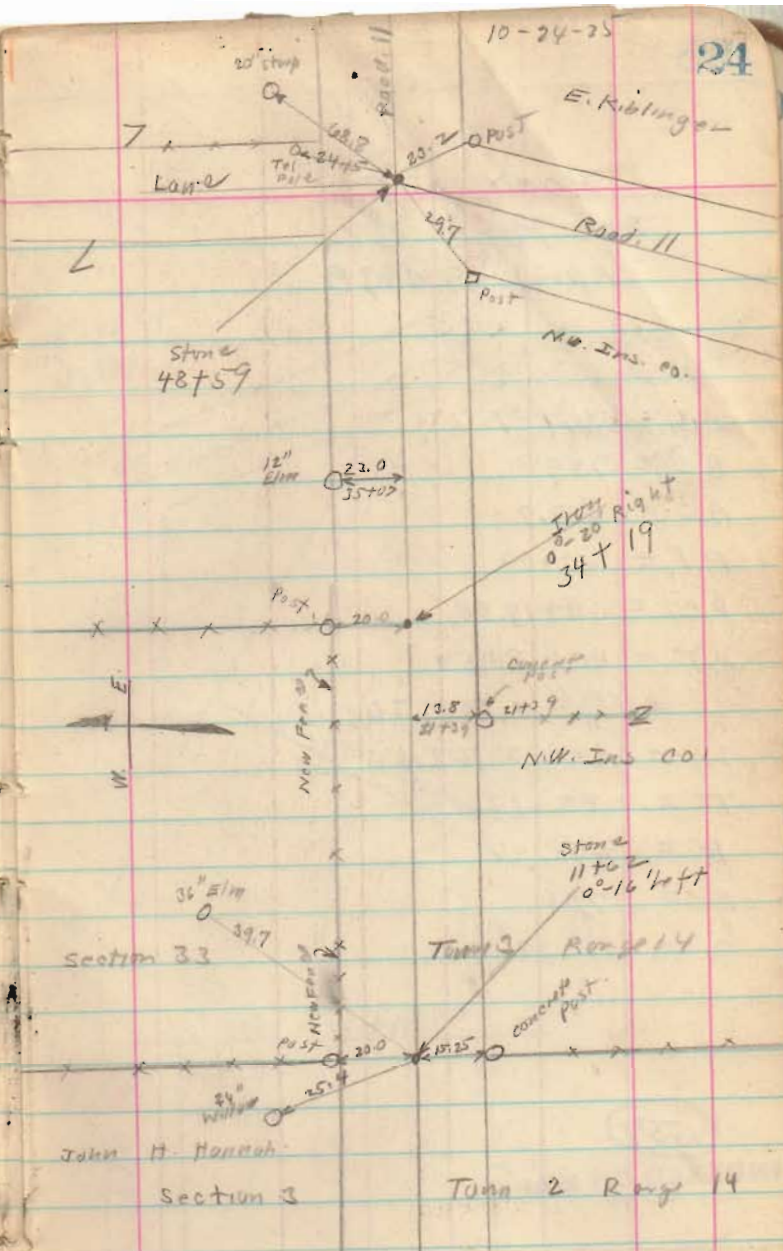 10-24-25
24
Road 11
20" stump
E. Kiblinger
68.8
23.2
Post
0-24+5
Tel
Pole
Lane
29.7
Road. 11
Post
N.W. Ins. co.
Stone
48+59
12"
Elm
23.0
35+07
Iron
0°-20 Right
34+19
Post
20.0
Concrete
Post
13.8
21+39
21+39
E.
W.
New Fence
N.W. Ins Co
Stone
11+62
0°-16' Left
36" Elm
39.7
Section 33
Town 3 Range 14
New Fence
concrete
Post
Post
20.0
15.25
24"
Willow
25.4
John H. Hannah
Section 3
Town 2 Range 14